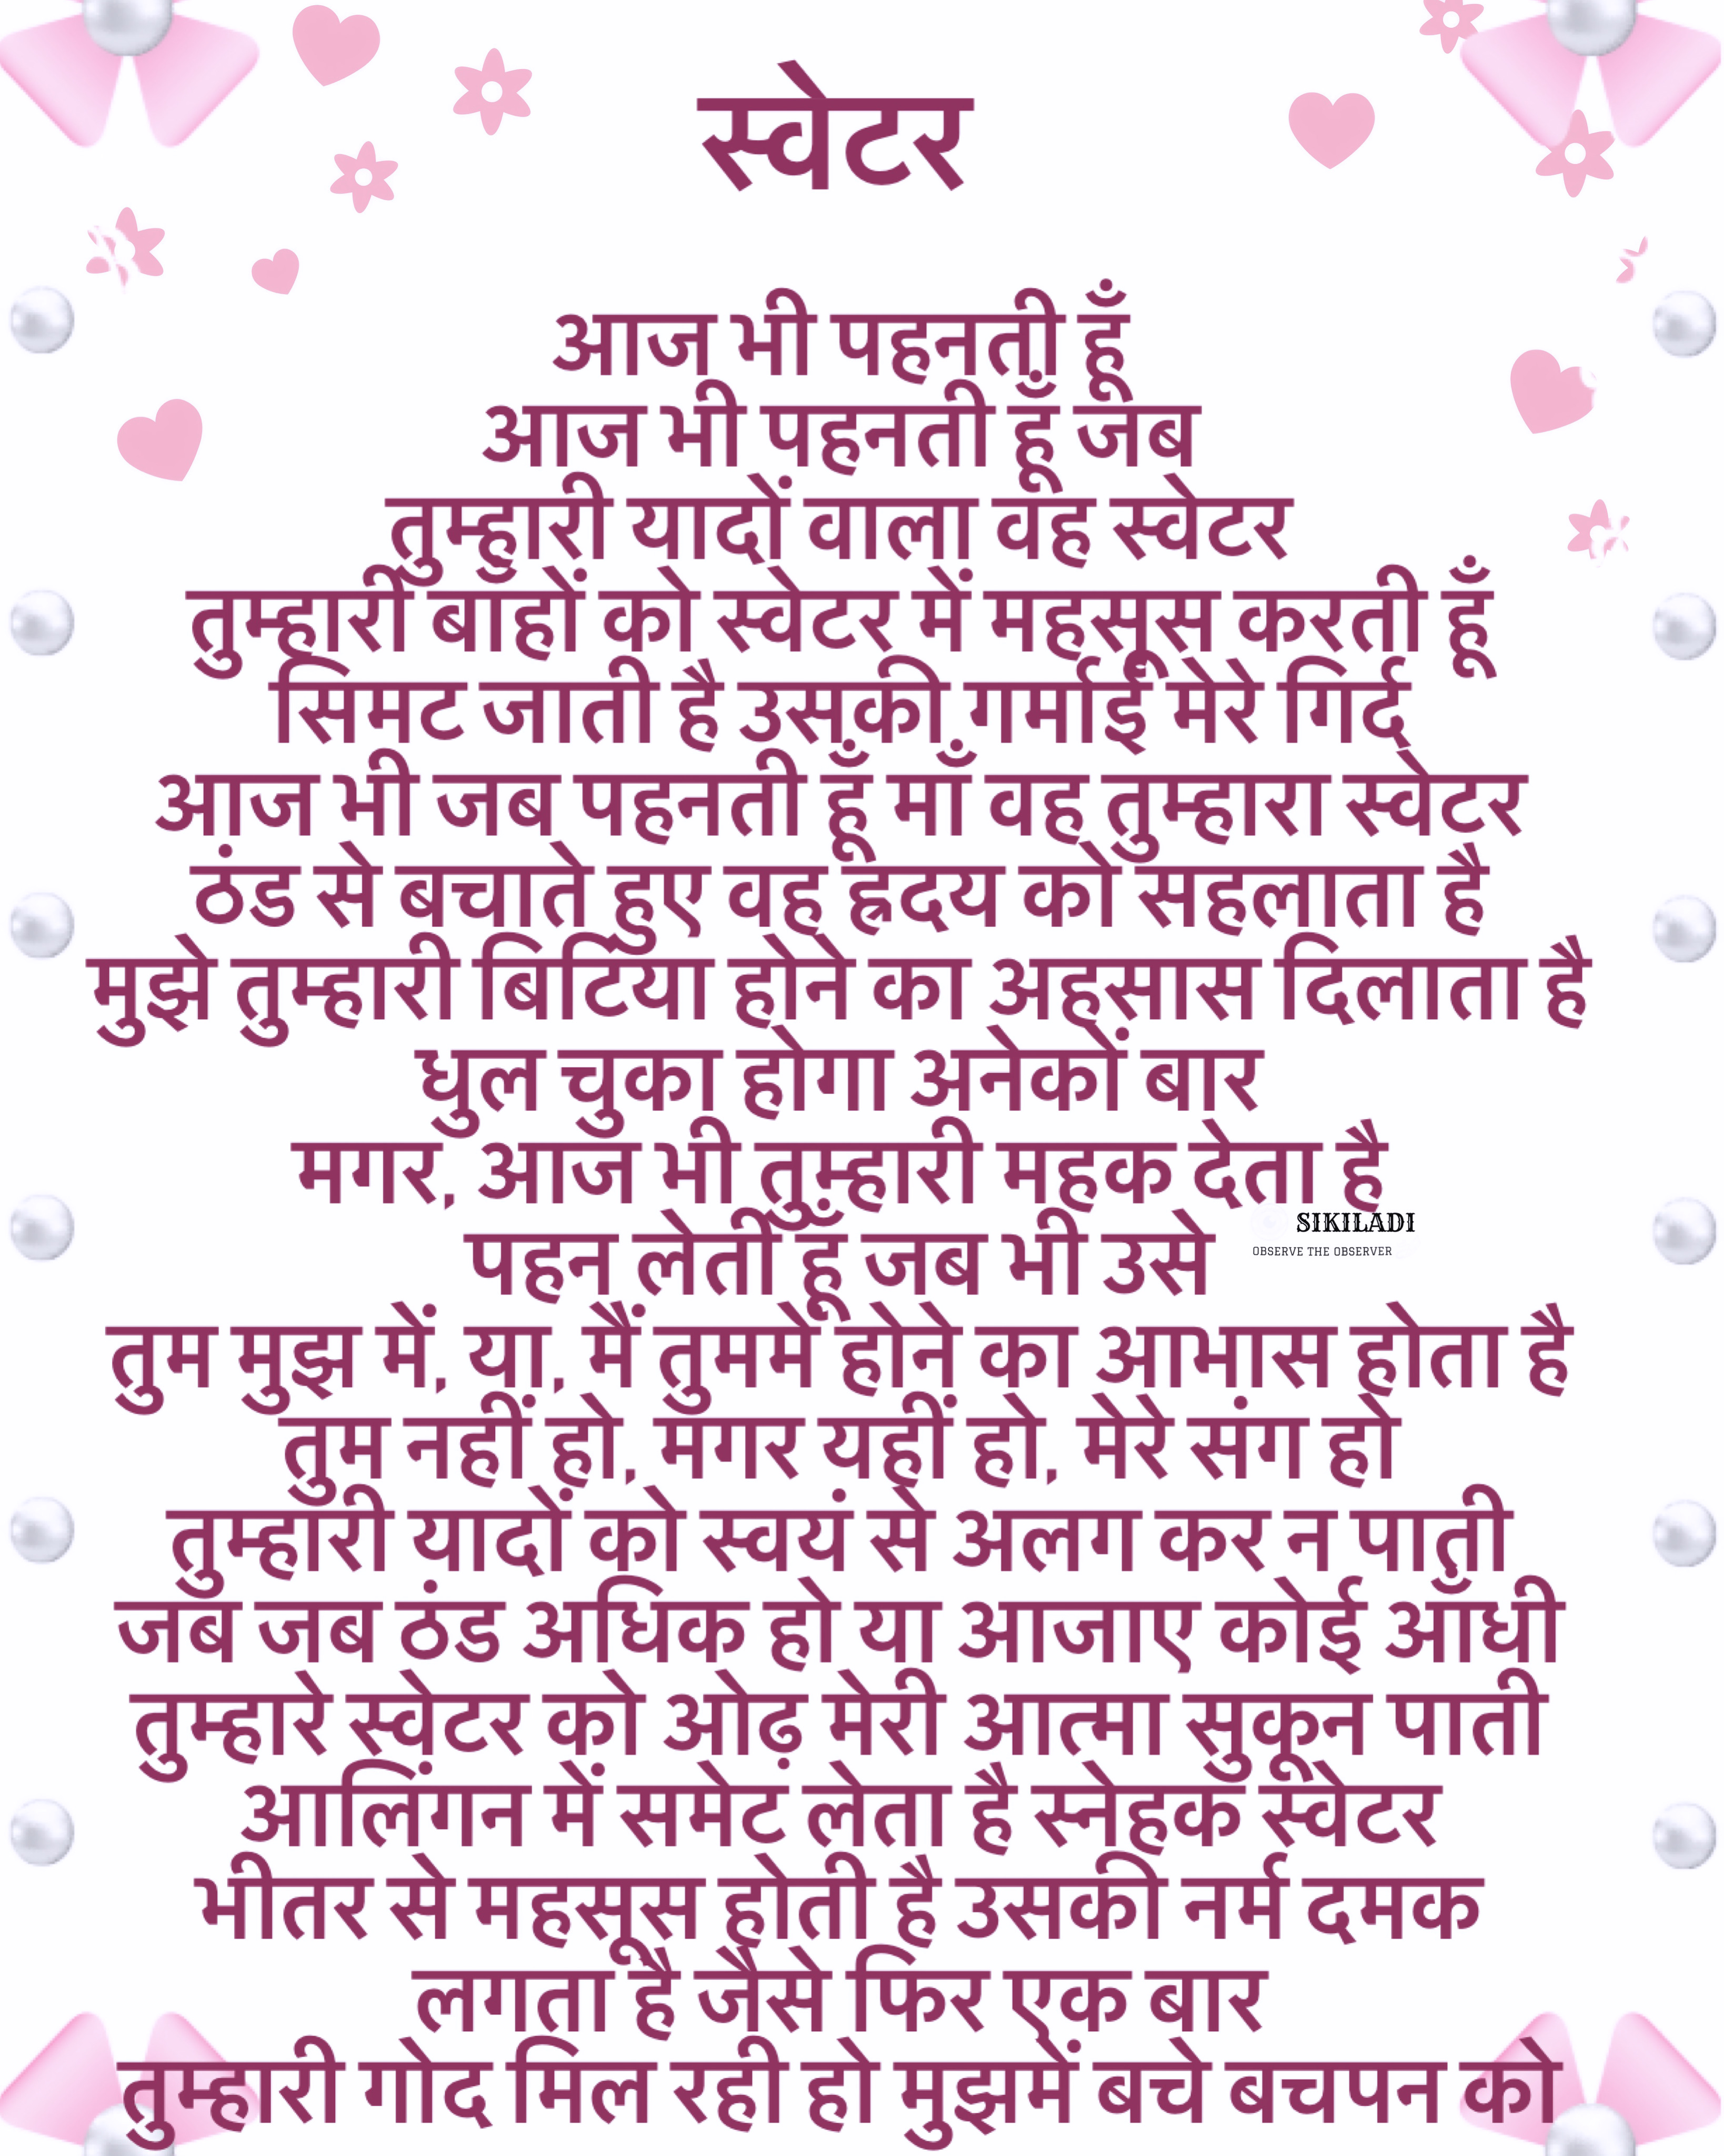 स्वेटर
आज भी पहनती हूँ
आज भी पहनती हूँ जब
तुम्हारी यादों वाला वह स्वेटर
तुम्हारी बाँहों को स्वेटर में महसूस करती हूँ
सिमट जाती है उसकी गर्माई मेरे गिर्द
आज भी जब पहनती हूँ माँ वह तुम्हारा स्वेटर
ठंड से बचाते हुए वह ह्रदय को सहलाता है
मुझे तुम्हारी बिटिया होने का अहसास दिलाता है
धुल चुका होगा अनेकों बार
मगर, आज भी तुम्हारी महक देता है
पहन लेती हूँ जब भी उसे
SIKILADI
OBSERVE THE OBSERVER
तुम मुझ में, या, मैं तुममें होने का आभास होता है
तुम नहीं हो, मगर यहीं हो, मेरे संग हो
तुम्हारी यादों को स्वयं से अलग कर न पाती
जब जब ठंड अधिक हो या आजाए कोई आँधी
तुम्हारे स्वेटर को ओढ़ मेरी आत्मा सुकून पाती
आलिंगन में समेट लेता है स्नेहक स्वेटर
भीतर से महसूस होती है उसकी नर्म दमक
लगता है जैसे फिर एक बार
तुम्हारी गोद मिल रही हो मुझमें बचे बचपन को